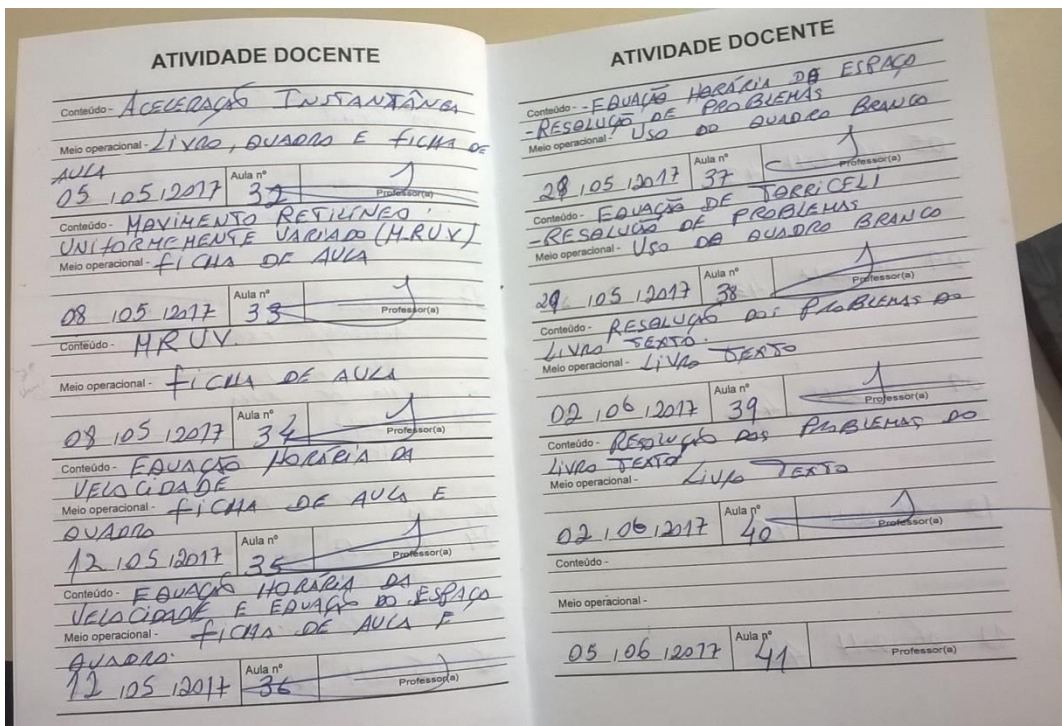 ATIVIDADE DOCENTE
Conteúdo - ACELERAÇÃO INSTANTÂNEA
Meio operacional - LIVRO, QUADRO E FICHA DE
AULA
05/05/2017 Aula nº 32 Professor(a)
Conteúdo - MOVIMENTO RETILÍNEO
UNIFORMEMENTE VARIADO (MRUV)
Meio operacional - FICHA DE AULA
08/05/2017 Aula nº 33 Professor(a)
Conteúdo - MRUV.
Meio operacional - FICHA DE AULA
08/05/2017 Aula nº 34 Professor(a)
Conteúdo - EQUAÇÃO HORÁRIA DA
VELOCIDADE
Meio operacional - FICHA DE AULA E
QUADRO
12/05/2017 Aula nº 35 Professor(a)
Conteúdo - EQUAÇÃO HORÁRIA DA
VELOCIDADE E EQUAÇÃO DO ESPAÇO
Meio operacional - FICHA DE AULA E
QUADRO.
12/05/2017 Aula nº 36 Professor(a)
ATIVIDADE DOCENTE
Conteúdo - - EQUAÇÃO HORÁRIA DO ESPAÇO
- RESOLUÇÃO DE PROBLEMAS
Meio operacional - USO DO QUADRO BRANCO
/05/2017 Aula nº 37 Professor(a)
Conteúdo - EQUAÇÃO DE TORRICELI
- RESOLUÇÃO DE PROBLEMAS
Meio operacional - USO DO QUADRO BRANCO
29/05/2017 Aula nº 38 Professor(a)
Conteúdo - RESOLUÇÃO DOS PROBLEMAS DO
LIVRO TEXTO.
Meio operacional - LIVRO TEXTO
02/06/2017 Aula nº 39 Professor(a)
Conteúdo - RESOLUÇÃO DOS PROBLEMAS DO
LIVRO TEXTO
Meio operacional - LIVRO TEXTO
02/06/2017 Aula nº 40 Professor(a)
Conteúdo -
Meio operacional -
05/06/2017 Aula nº 41 Professor(a)